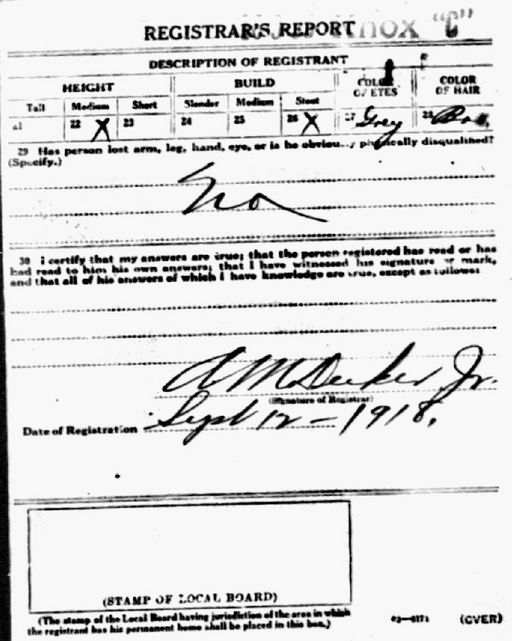 REGISTRAR'S REPORT "C"
DESCRIPTION OF REGISTRANT
HEIGHT BUILD COLOR OF EYES COLOR OF HAIR
Tall Medium Short Slender Medium Stout
21 22 X 23 24 25 26 X 27 Grey 28
29 Has person lost arm, leg, hand, eye, or is he obviously physically disqualified?
(Specify.)
No
30 I certify that my answers are true; that the person registered has read or has
had read to him his own answers; that I have witnessed his signature or mark,
and that all of his answers of which I have knowledge are true, except as follows:
Jr.
(Signature of Registrar)
Date of Registration Sept 12 - 1918.
(STAMP OF LOCAL BOARD)
(The stamp of the Local Board having jurisdiction of the area in which
the registrant has his permanent home shall be placed in this box.)
03—6171 (OVER)